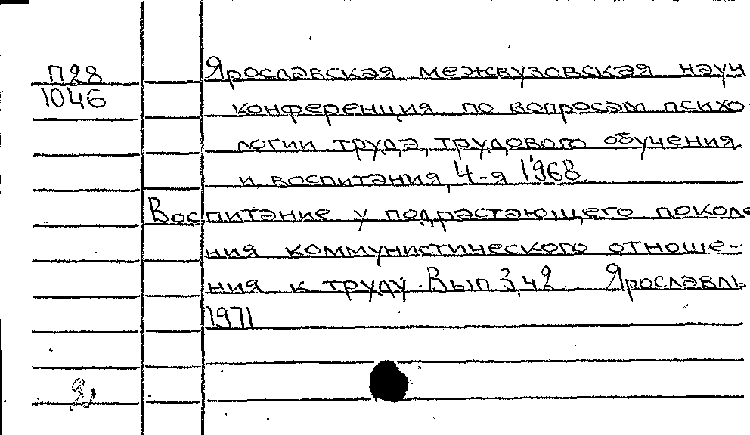 П28
1046
Ярославская межвузовская науч
конференция по вопросам психо
логии труда, трудового обучения
и воспитания, 4-я 1968
Воспитание у подрастающего поколе
ния коммунистического отноше-
ния к труду. Вып 3, ч 2 Ярославль
1971